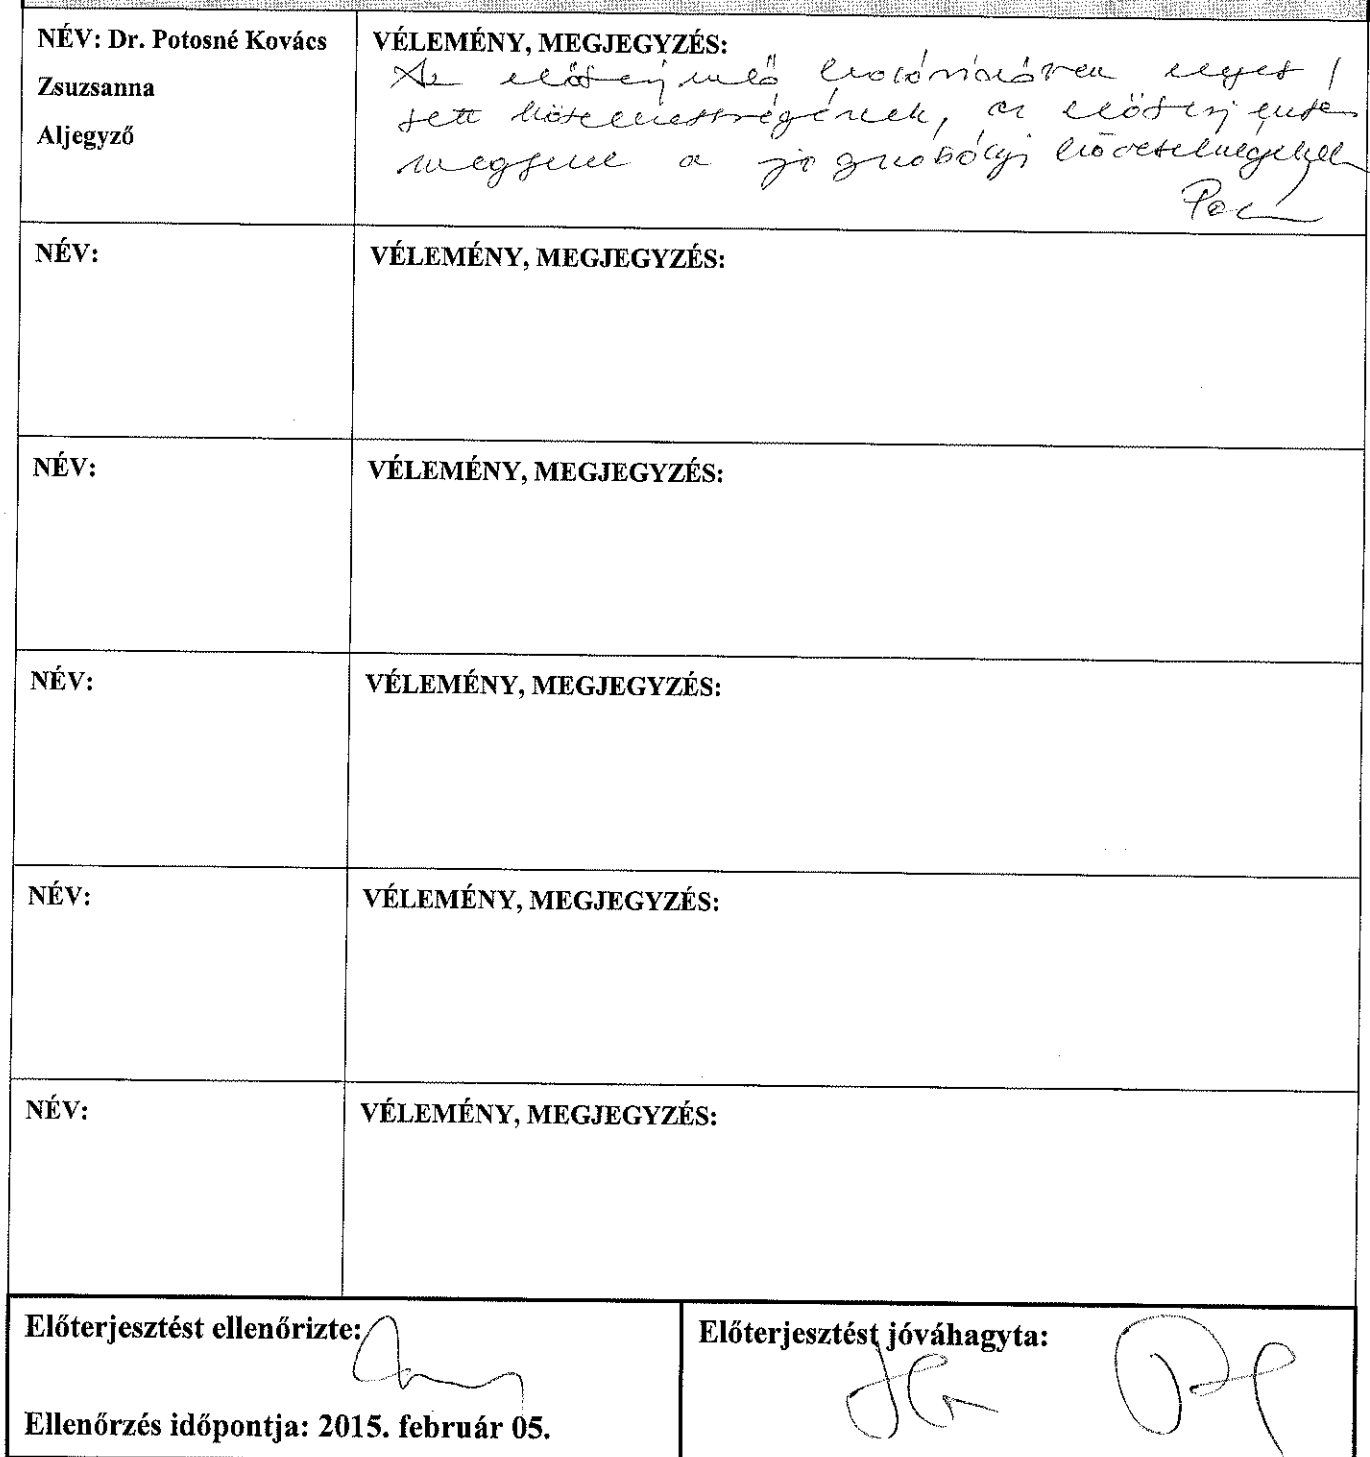 NÉV: Dr. Potosné Kovács
Zsuzsanna
Aljegyző
VÉLEMÉNY, MEGJEGYZÉS:
Az előterjesztő eleget
tett kötelezettségének, az előterjesztés
megfelel a jogszabályi követelményeknek
NÉV:
VÉLEMÉNY, MEGJEGYZÉS:
NÉV:
VÉLEMÉNY, MEGJEGYZÉS:
NÉV:
VÉLEMÉNY, MEGJEGYZÉS:
NÉV:
VÉLEMÉNY, MEGJEGYZÉS:
NÉV:
VÉLEMÉNY, MEGJEGYZÉS:
Előterjesztést ellenőrizte:
Ellenőrzés időpontja: 2015. február 05.
Előterjesztést jóváhagyta: